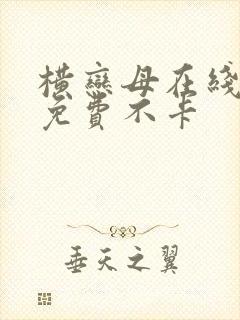 横恋母在线
免费不卡
垂天之翼